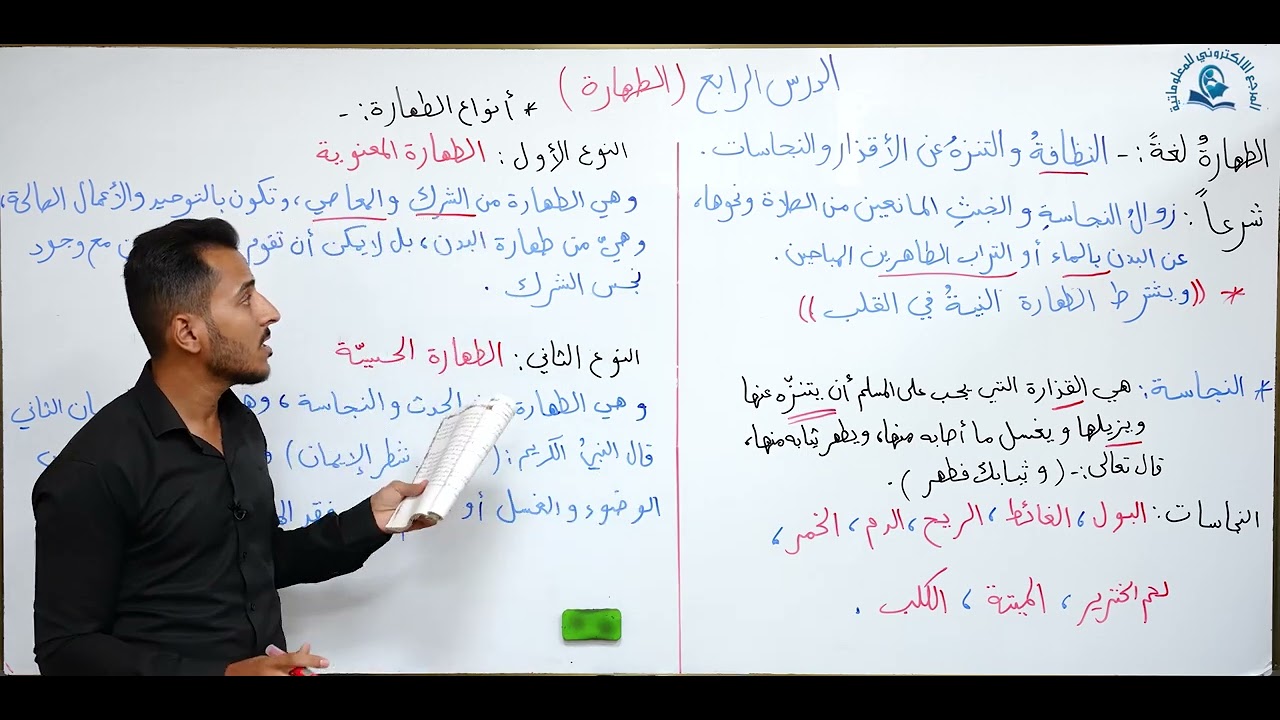 الدرس الرابع (الطهارة)
المرجع الالكتروني للمعلوماتية
الطهارةُ لغةً :- النظافةُ والتنزهُ عن الأقذار والنجاسات .
شرعاً : زوالُ النجاسةِ والخبثِ المانعين من الصلاة ونحوها،
عن البدن بالماء أو التراب الطاهرين المباحين .
* ((ويشترط الطهارة النيةُ في القلب))
* النجاسة : هي القذارة التي يجب على المسلم أن يتنزّه عنها
ويزيلها ويغسل ما أصابه منها، ويطهر ثيابه منها،
قال تعالى :- ( وثيابك فطهر ) .
النجاسات : البول ، الغائط ، الريح ، الدم ، الخمر ،
لحم الخنزير ، الميتة ، الكلب .
* أنواع الطهارة :-
النوع الأول : الطهارة المعنوية
وهي الطهارة من الشرك والمعاصي ، وتكون بالتوحيد والأعمال الصالحة،
وهي من طهارة البدن ، بل لا يمكن أن تقوم مع وجود
نجس الشرك .
النوع الثاني : الطهارة الحسيّة
وهي الطهارة الحدث والنجاسة ، الثاني
قال النبيُ الكريم : ( شطر الإيمان )
الوضوء والغسل أو فقد